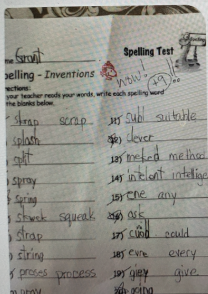 me Grant
Spelling Test
pelling - Inventions
Wow!
rections:
your teacher reads your words, write each spelling word
the blanks below.
strap scrap
splash
split
spray
spring
skwek squeak
strap
string
proses process
11) subl suitable
12) clever
13) meked method
14) intelent intellige
15) ene any
16) ask
17) cudd could
18) evre every
19) giev give
20) going